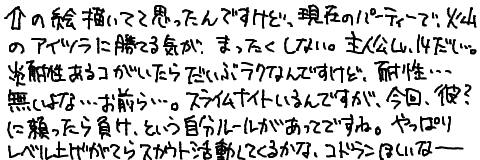 ⇧の絵描いてて思ったんですけど、現在のパーティーで、火山
のアイツラに勝てる気が、まったくしない。主人公Lv.14だし。
炎耐性あるコがいたらだいぶラクなんですけど、耐性…
無いよな…お前ら…。スライムナイトいるんですが、今回、彼?
に頼ったら負け、という自分ルールがあってですね。やっぱり
レベル上げがてらスカウト活動してくるかな、コドランほしいなー